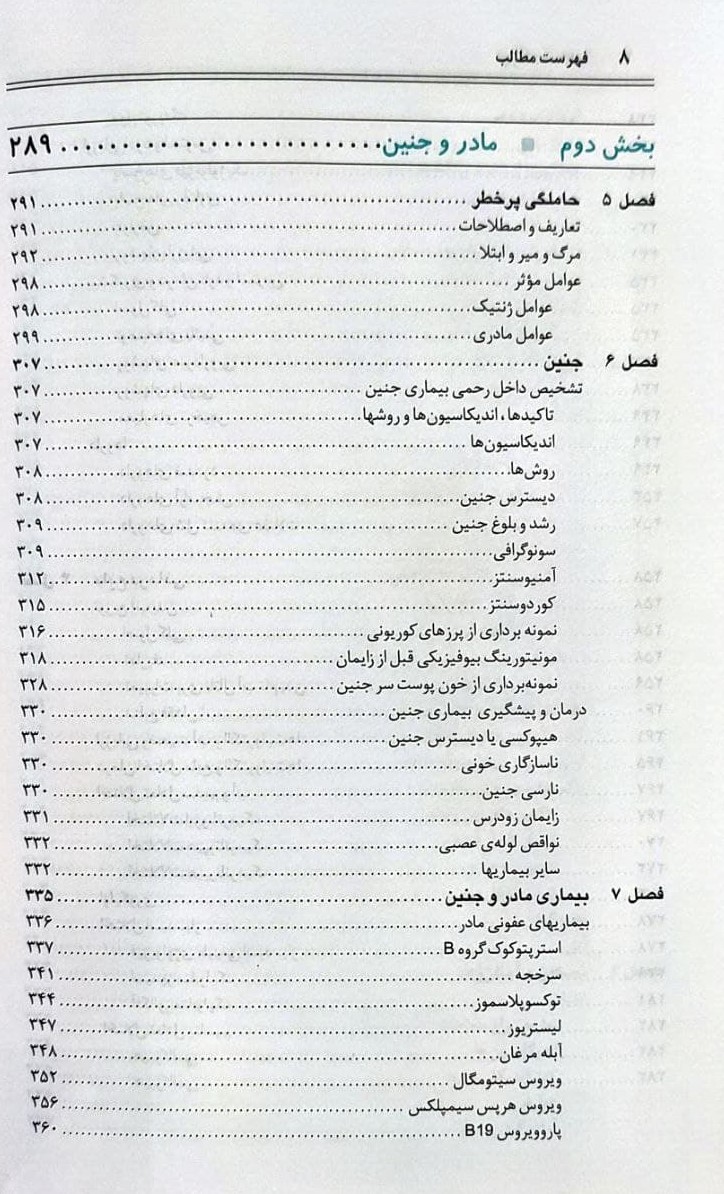 ۸ فهرست مطالب
بخش دوم ■ مادر و جنین ............................ ۲۸۹
فصل ۵ حاملگی پرخطر ............................ ۲۹۱
تعاریف و اصطلاحات ............................ ۲۹۱
مرگ و میر و ابتلا ............................ ۲۹۲
عوامل مؤثر ............................ ۲۹۸
عوامل ژنتیک ............................ ۲۹۸
عوامل مادری ............................ ۲۹۹
فصل ۶ جنین ............................ ۳۰۷
تشخیص داخل رحمی بیماری جنین ............................ ۳۰۷
تاکیدها، اندیکاسیون‌ها و روشها ............................ ۳۰۷
اندیکاسیون‌ها ............................ ۳۰۷
روش‌ها ............................ ۳۰۸
دیسترس جنین ............................ ۳۰۸
رشد و بلوغ جنین ............................ ۳۰۹
سونوگرافی ............................ ۳۰۹
آمنیوسنتز ............................ ۳۱۲
کوردوسنتز ............................ ۳۱۵
نمونه برداری از پرزهای کوریونی ............................ ۳۱۶
مونیتورینگ بیوفیزیکی قبل از زایمان ............................ ۳۱۸
نمونه‌برداری از خون پوست سر جنین ............................ ۳۲۸
درمان و پیشگیری بیماری جنین ............................ ۳۳۰
هیپوکسی یا دیسترس جنین ............................ ۳۳۰
ناسازگاری خونی ............................ ۳۳۰
نارسی جنین ............................ ۳۳۰
زایمان زودرس ............................ ۳۳۱
نواقص لوله‌ی عصبی ............................ ۳۳۲
سایر بیماریها ............................ ۳۳۲
فصل ۷ بیماری مادر و جنین ............................ ۳۳۵
بیماریهای عفونی مادر ............................ ۳۳۶
استرپتوکوک گروه B ............................ ۳۳۷
سرخجه ............................ ۳۴۱
توکسوپلاسموز ............................ ۳۴۴
لیستریوز ............................ ۳۴۷
آبله مرغان ............................ ۳۴۸
ویروس سیتومگال ............................ ۳۵۲
ویروس هرپس سیمپلکس ............................ ۳۵۶
پاروویروس B19 ............................ ۳۶۰